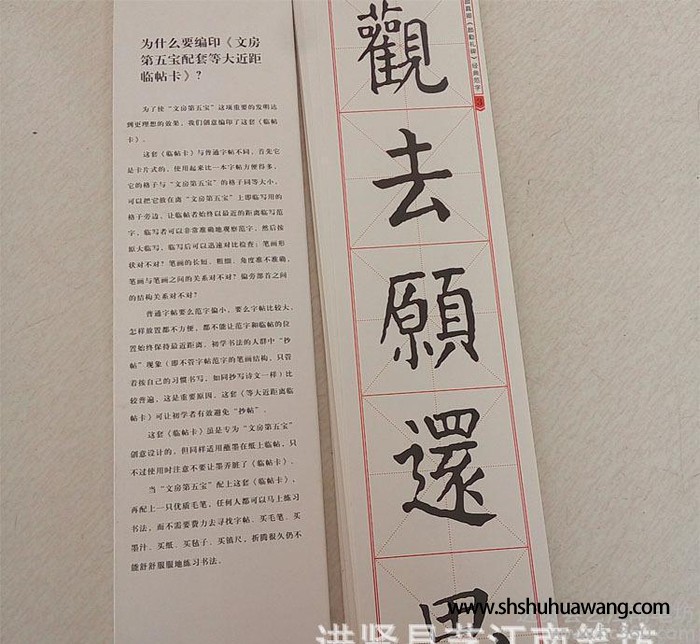 为什么要编印《文房
第五宝配套等大近距
临帖卡》?
为了使“文房第五宝”这项重要的发明达
到更理想的效果，我们创意编印了这套《临帖
卡》。
这套《临帖卡》与普通字帖不同，首先它
是卡片式的，使用起来比一本字帖方便得多，
它的格子与“文房第五宝”的格子同等大小，
可以把它放在离“文房第五宝”上即临写用的
格子旁边，让临帖者始终以最近的距离临写范
字，临写者可以非常准确地观察范字，然后按
原大临写，临写后可以迅速对比检查：笔画形
状对不对？笔画的长短、粗细、角度准不准确，
笔画与笔画之间的关系对不对？偏旁部首之间
的结构关系对不对？
普通字帖要么范字偏小，要么字帖比较大，
怎样放置都不方便，都不能让范字和临帖的位
置始终保持最近距离，初学书法的人群中“抄
帖”现象（即不管字帖范字的笔画结构，只管
着按自己的习惯书写，如同抄写诗文一样）比
较普遍，这是重要原因。这套《等大近距离临
帖卡》可让初学者有效避免“抄帖”。
这套《临帖卡》虽是专为“文房第五宝”
创意设计的，但同样适用蘸墨在纸上临帖，只
不过使用时注意不要让墨弄脏了《临帖卡》。
当“文房第五宝”配上这套《临帖卡》，
再配上一只优质毛笔，任何人都可以马上练习
书法，而不需要费力去寻找字帖、买毛笔、买
墨汁、买纸、买毡子、买镇尺，折腾很久仍不
能舒舒服服地练习书法。
觀
去
願
還
《颜勤礼碑》经典范字
3
www.shshuhuawang.com